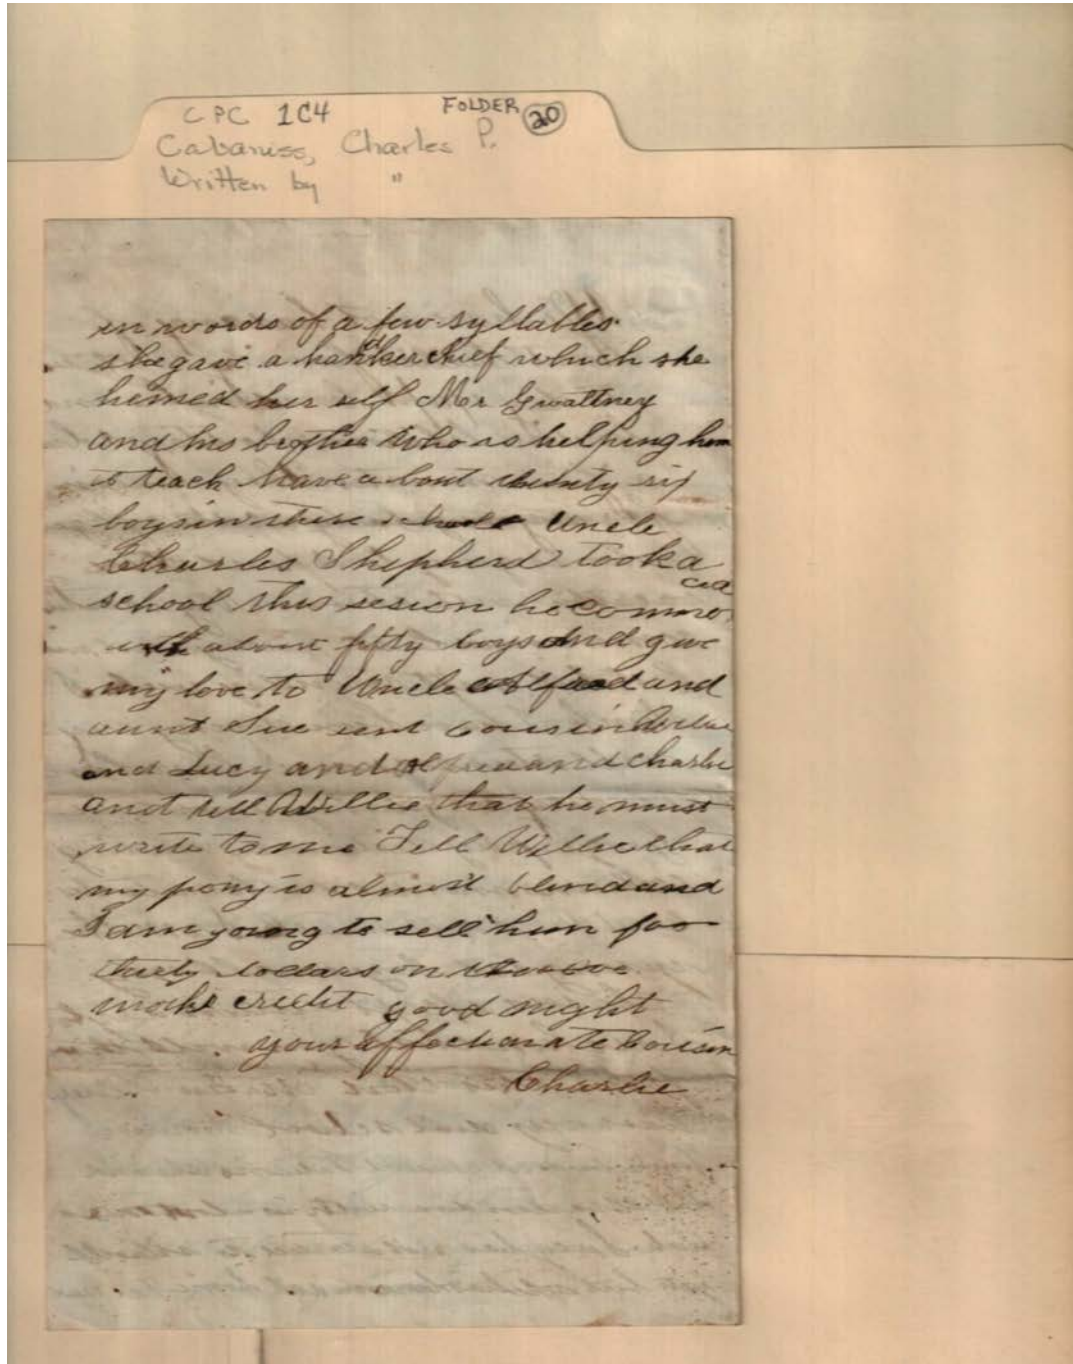 CPC 1C4 FOLDER 20
Cabaniss, Charles P.
Written by "
in words of a few syllables
she gave a hankerchief which she
hemed her self Mr Gwaltney
and his brother who is helping him
to teach have a bout twenty six
boys in there schoole Uncle
Charles Shepherd took a
school this sesion he commen
ced
with about fifty boys and give
my love to Uncle Alfred and
aunt Sue and cousin Willie
and Lucy and Alfred and Charlie
and tell Willie that he must
write to me Tell Willie that
my pony is almost blind and
I am going to sell him for
thirty dollars on twelve
months credit good night
your affectionate Cousin
Charlie